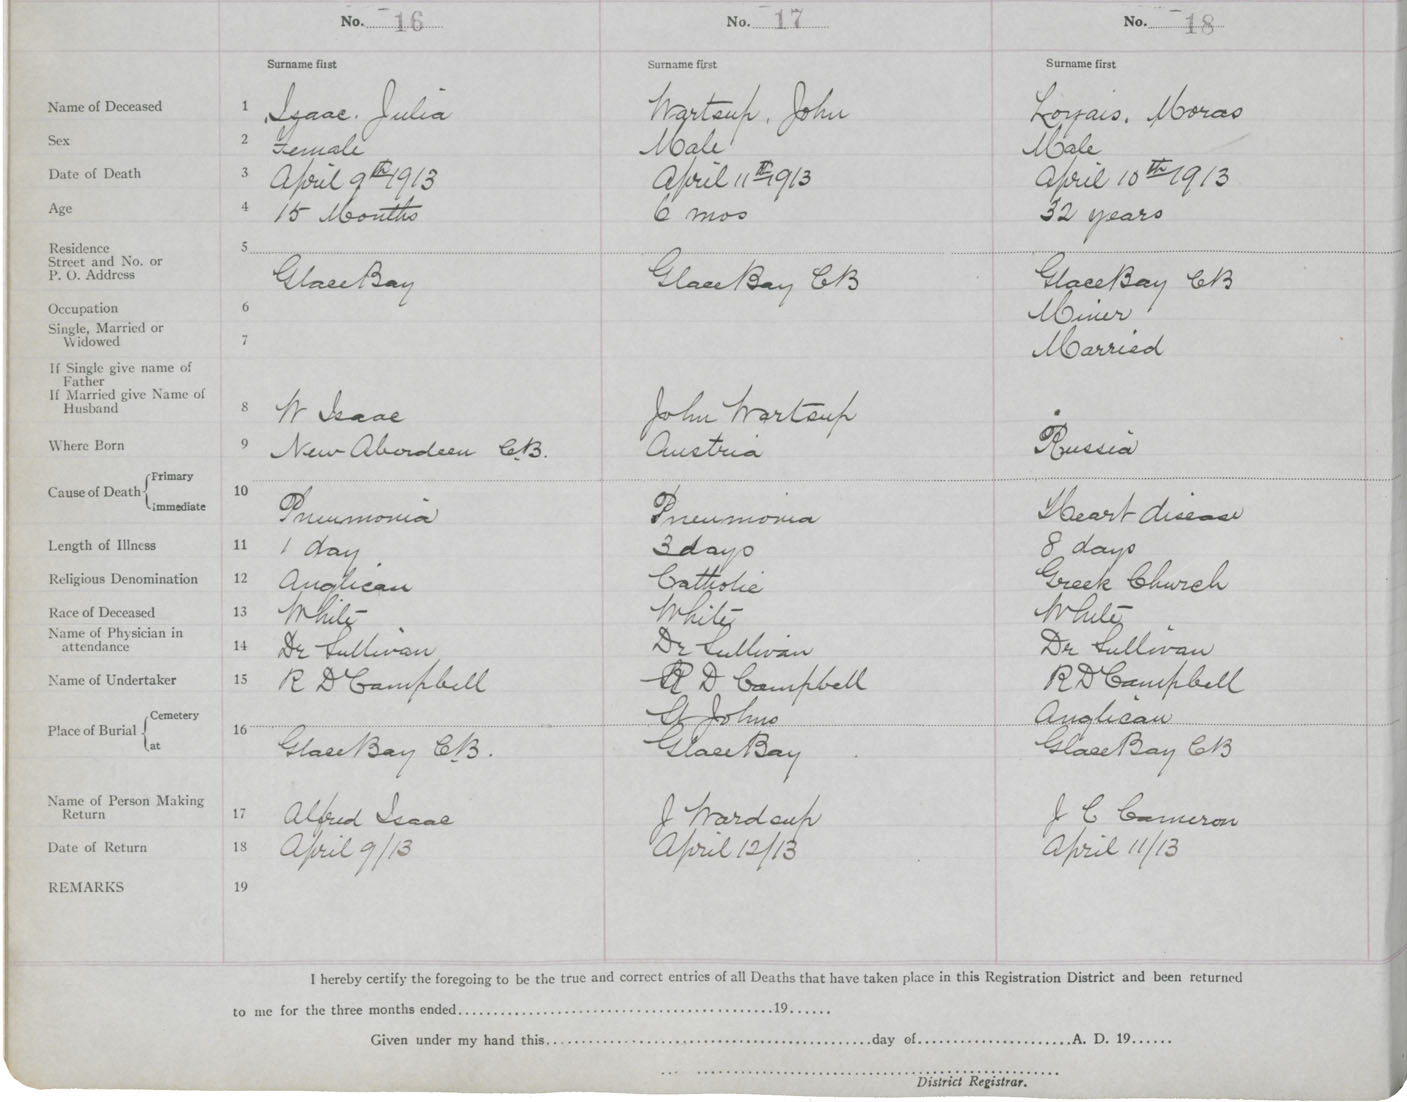 No. 16 No. 17 No. 18
Surname first Surname first Surname first
Name of Deceased 1 Isaac. Julia Wartsup, John Moras
Sex 2 Female Male Male
Date of Death 3 April 9th 1913 April 11th 1913 April 10th 1913
Age 4 15 Months 6 mos 32 years
Residence 5
Street and No. or
P. O. Address Glace Bay Glace Bay CB Glace Bay CB
Occupation 6 Miner
Single, Married or
Widowed 7 Married
If Single give name of
Father
If Married give Name of
Husband 8 W Isaac John Wartsup
Where Born 9 New Aberdeen C.B. Austria Russia
Cause of Death Primary 10
Immediate Pneumonia Pneumonia Heart disease
Length of Illness 11 1 day 3 days 8 days
Religious Denomination 12 Anglican Catholic Greek Church
Race of Deceased 13 White White White
Name of Physician in
attendance 14 Dr Sullivan Dr Sullivan Dr Sullivan
Name of Undertaker 15 R D Campbell R D Campbell R D Campbell
Place of Burial Cemetery 16 St Johns Anglican
at Glace Bay C.B. Glace Bay Glace Bay CB
Name of Person Making
Return 17 Alfred Isaac J Wardsup J C Cameron
Date of Return 18 April 9/13 April 12/13 April 11/13
REMARKS 19
I hereby certify the foregoing to be the true and correct entries of all Deaths that have taken place in this Registration District and been returned
to me for the three months ended..........19......
Given under my hand this..........day of..........A. D. 19......
District Registrar.